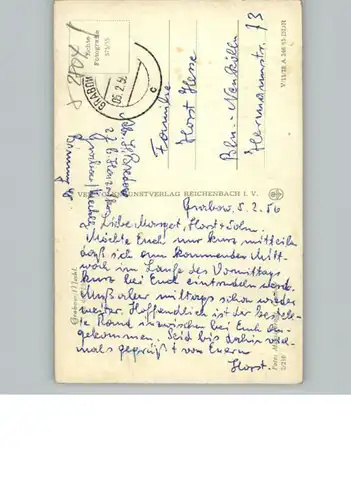 Echte
Fotografie
GRABOW
05.2.56
c
V/11/28 A 246/55 DDR
Familie
Horst Hesse
Bln.-Neukölln
Hermannstr. 73
VERLAG KUNSTVERLAG REICHENBACH I. V.
Grabow, 5.2.56
Liebe Margot, Horst + Sohn.
Möchte Euch nur kurz mitteilen
daß ich am kommenden Mitt-
woch im Laufe des Vormittags
kurz bei Euch eintrudeln werde.
Muß aber mittags schon wieder
weiter. Hoffendlich ist der bestell-
te Rand inzwischen bei Euch an-
gekommen. Seid bis dahin viel-
mals gegrüßt von Euern
Horst.
Grabow/Meckl.
Foto: